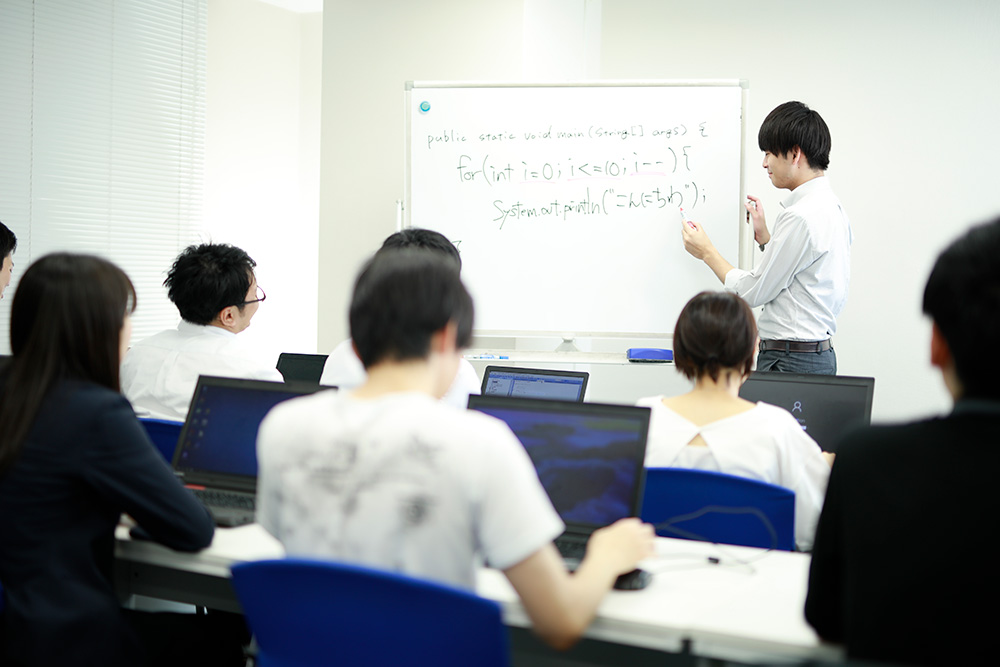 public static void main(String[] args) {
for(int i=0; i<=10; i--){
System.out.println("こんにちわ");